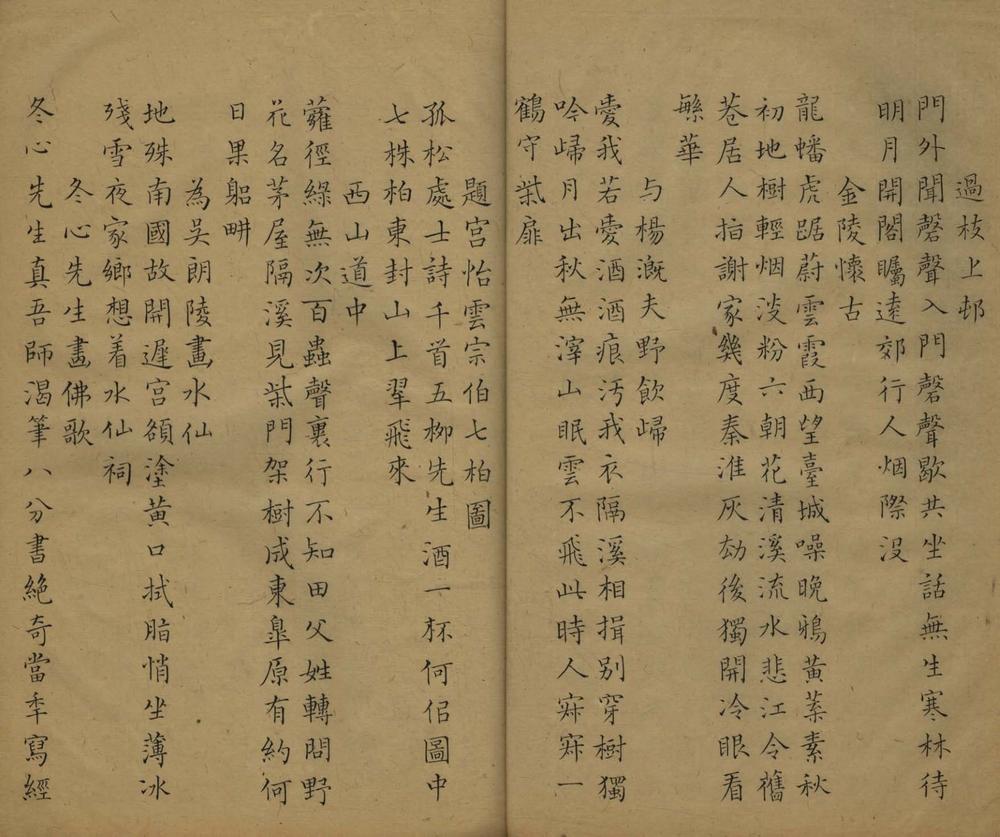 過枝上邨
門外聞磬聲入門磬聲歇共坐話無生寒林待
明月開閣矚遠郊行人烟際没
金陵懷古
龍蟠虎踞蔚雲霞西望臺城噪晚鴉黃葉素秋
初地樹輕烟淡粉六朝花清溪流水悲江令舊
巷居人指謝家幾度秦淮灰劫後獨開冷眼看
繁華
与楊溉夫野飲歸
愛我若愛酒酒痕汚我衣隔溪相揖别穿樹獨
吟歸月出秋無滓山眠雲不飛此時人寂寂一
鶴守柴扉
題宫怡雲宗伯七柏圖
孤松處士詩千首五柳先生酒一杯何侣圖中
七株柏東封山上翠飛來
西山道中
蘿徑緑無次百蟲聲裏行不知田父姓轉問野
花名茅屋隔溪見柴門架樹成東皐原有約何
日果躬畊
為吴朗陵畫水仙
地殊南國故開遲宫額塗黃口拭脂悄坐薄冰
殘雪夜家鄉想着水仙祠
冬心先生畫佛歌
冬心先生真吾師渴筆八分書絶奇當年寫經